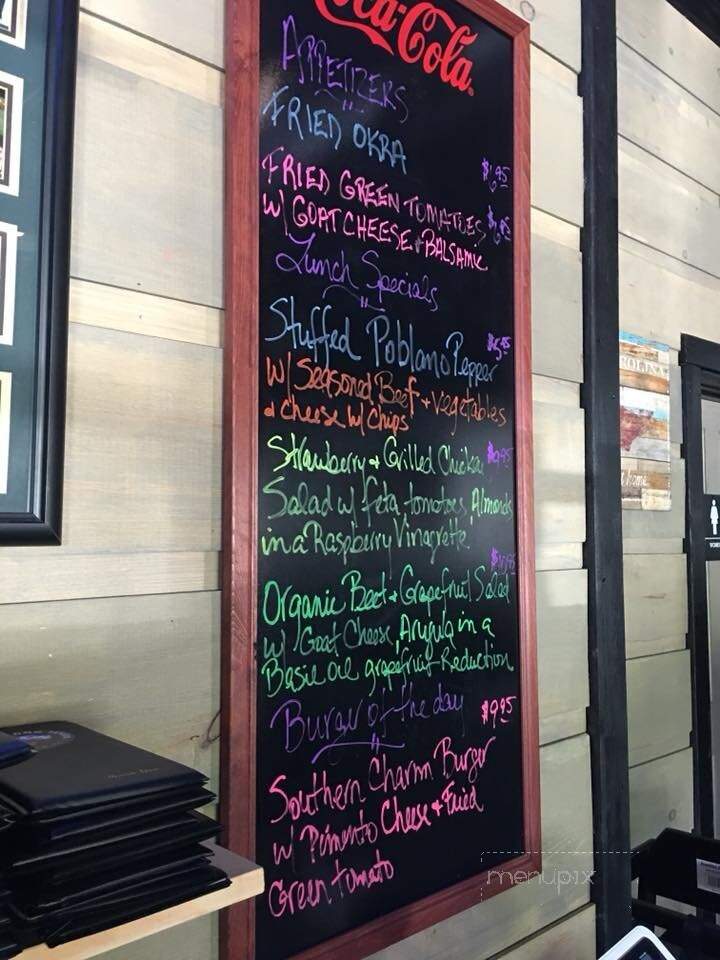 Coca-Cola
APPETIZERS
FRIED OKRA
FRIED GREEN TOMATOES
W/ GOAT CHEESE + BALSAMIC
Lunch Specials
Stuffed Poblano Pepper
w/ Seasoned Beef + vegetables
+ cheese w/ chips
Strawberry + Grilled Chicken $9.95
Salad w/ feta, tomatoes, Almonds
in a Raspberry Vinagrette
Organic Beet + Grapefruit Salad
w/ Goat Cheese, Arugula in a
Basil Oil grapefruit Reduction
Burger of the day $9.95
Southern Charm Burger
w/ Pimento Cheese + Fried
Green tomato
menupix